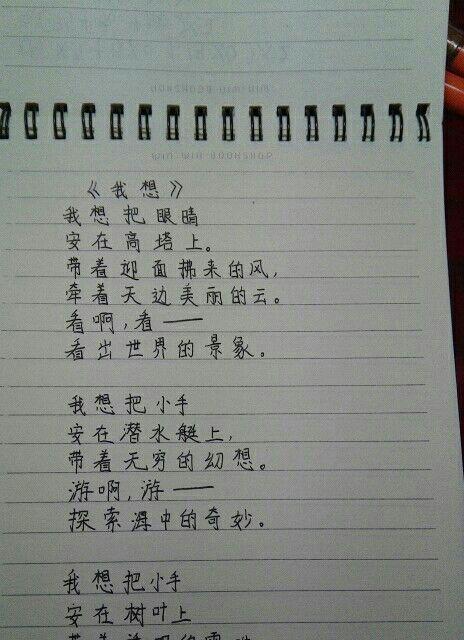 《我想》
我想把眼睛
安在高塔上。
带着迎面拂来的风,
牵着天边美丽的云。
看啊,看——
看出世界的景象。
我想把小手
安在潜水艇上,
带着无穷的幻想。
游啊,游——
探索海中的奇妙。
我想把小手
安在树叶上